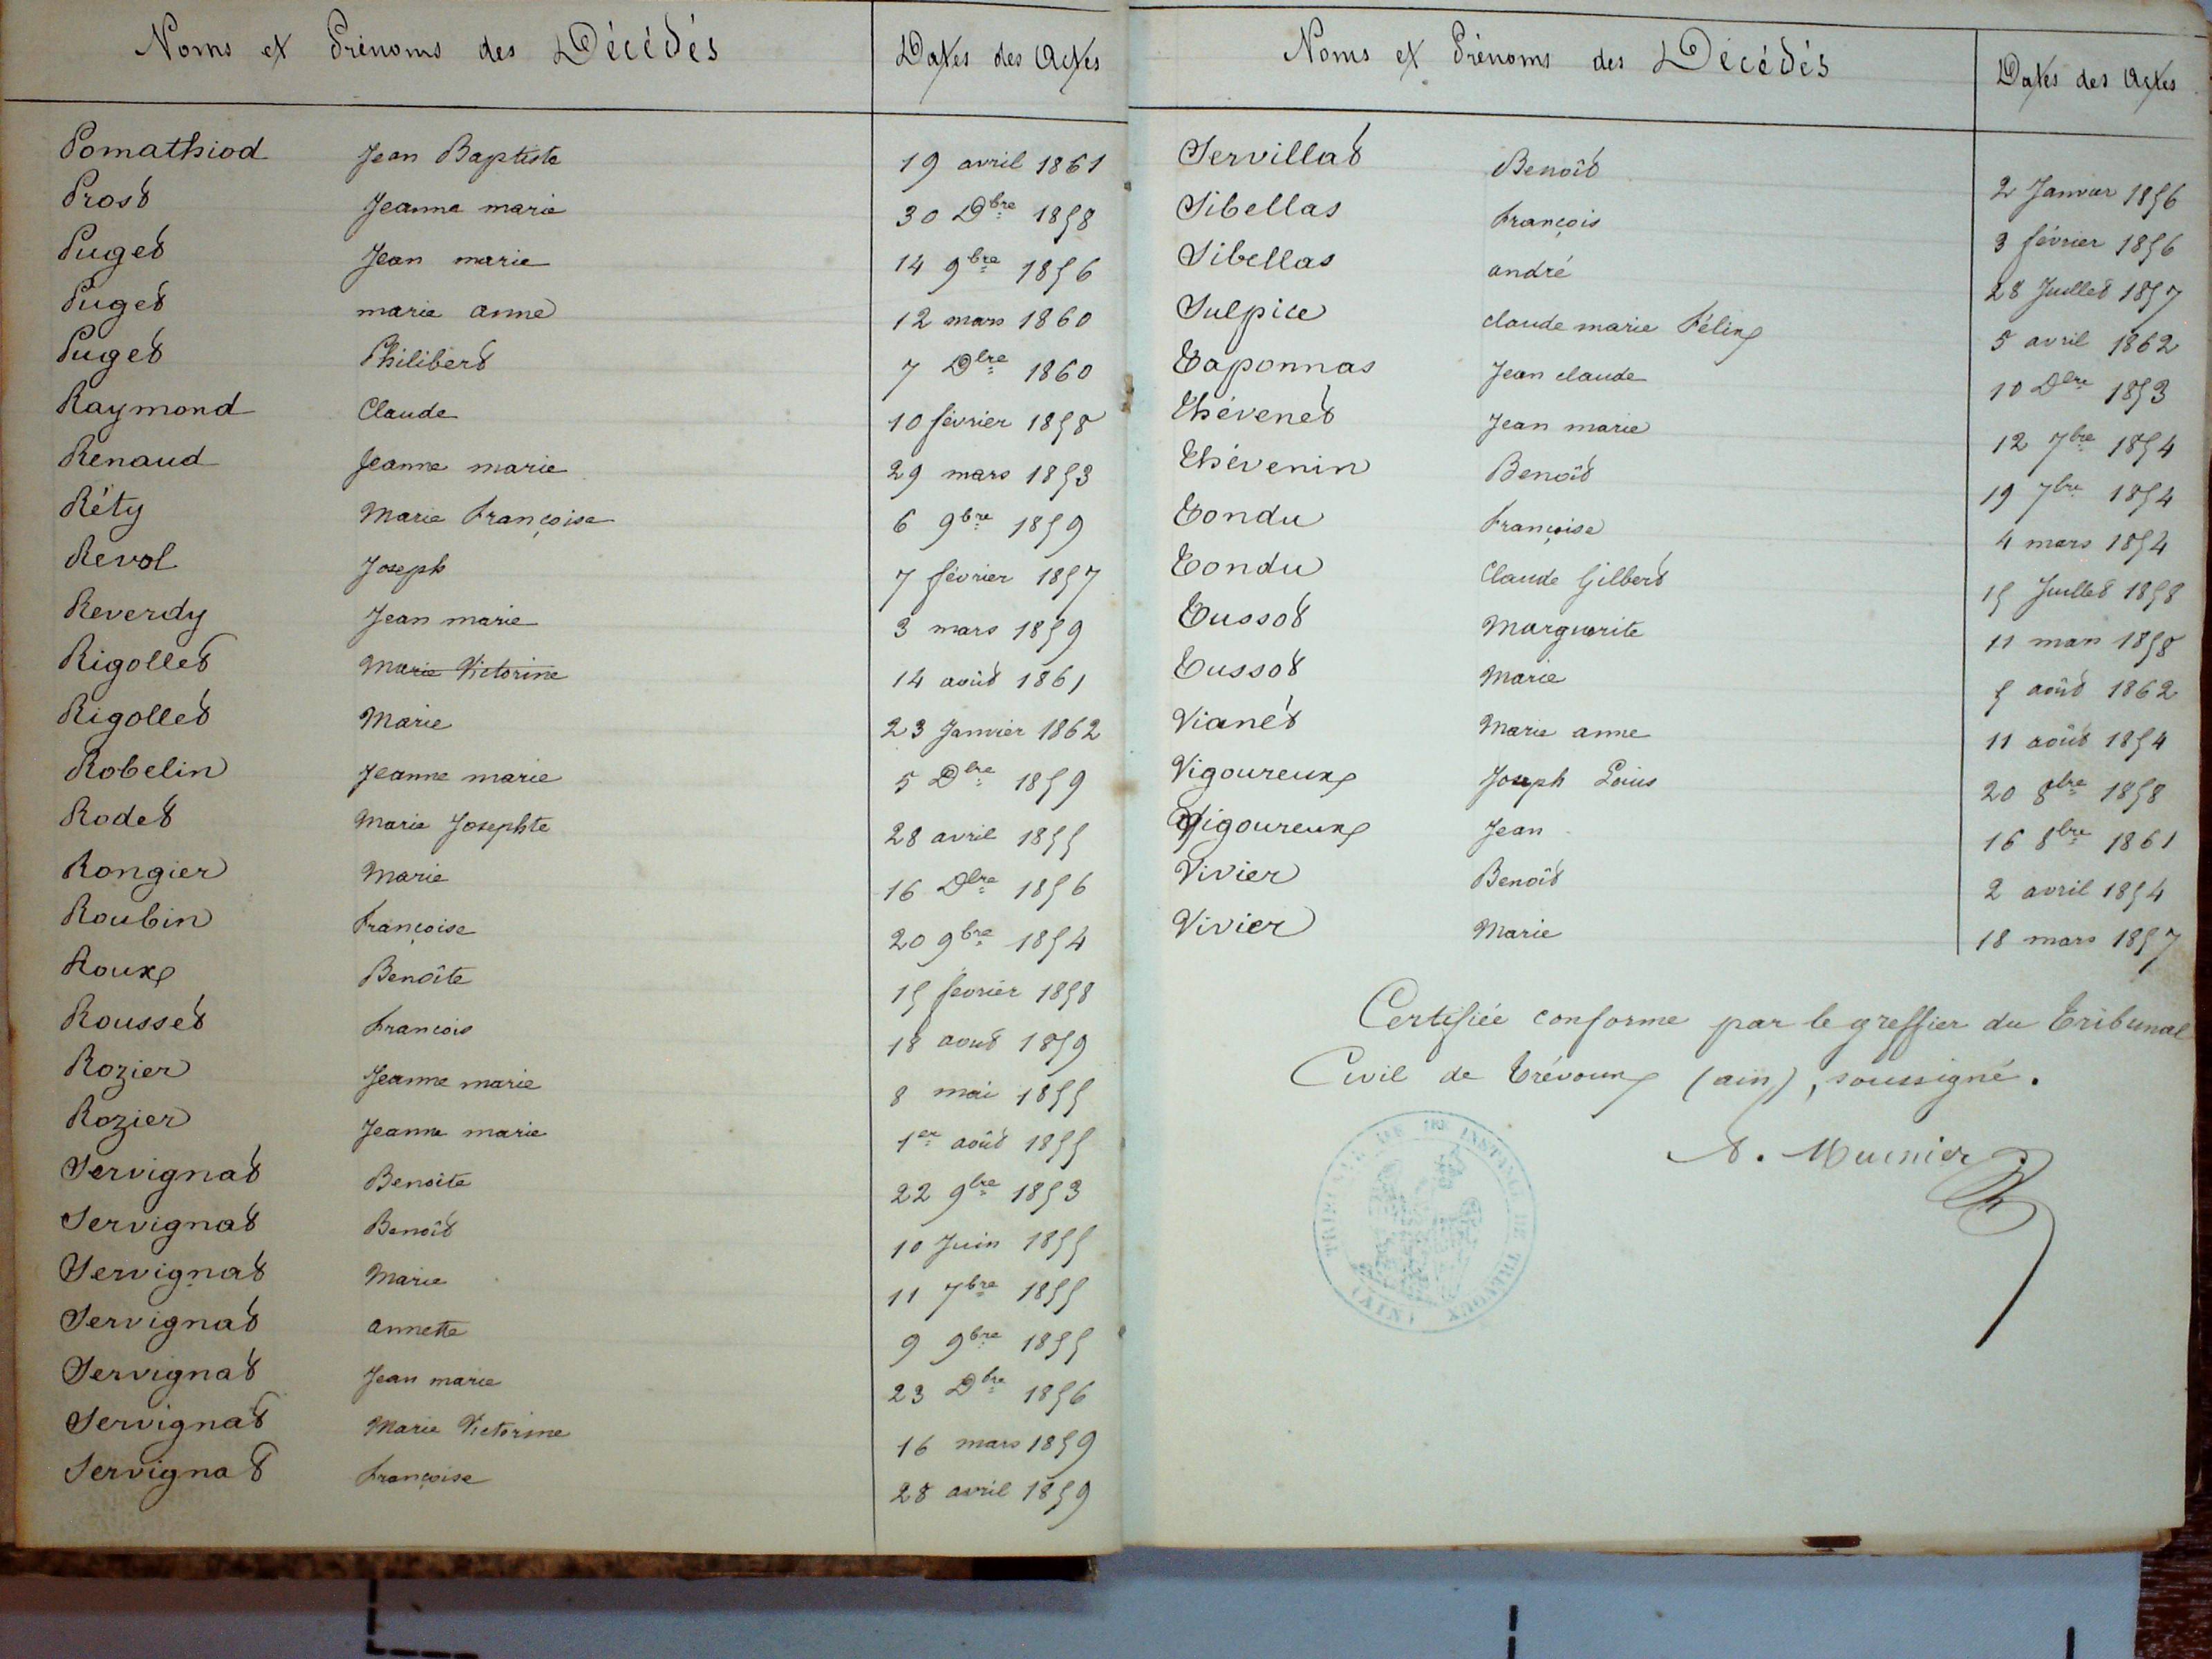 Noms et Prénoms des Décédés Dates des Actes
Pomathiod Jean Baptiste 19 avril 1861
Prost Jeanne marie 30 Dbre 1858
Puget Jean marie 14 9bre 1856
Puget marie anne 12 mars 1860
Puget Philibert 7 Dbre 1860
Raymond Claude 10 février 1858
Renaud Jeanne marie 29 mars 1853
Réty Marie Françoise 6 9bre 1859
Revol Joseph 7 février 1857
Reverdy Jean marie 3 mars 1859
Rigollet Marie Victorine 14 août 1861
Rigollet Marie 23 Janvier 1862
Robelin Jeanne marie 5 Dbre 1859
Rodet Marie Josephte 28 avril 1855
Rongier Marie 16 Dbre 1856
Roubin Françoise 20 9bre 1854
Roux Benoîte 15 février 1858
Rousset François 18 aout 1859
Rozier Jeanne marie 8 mai 1855
Rozier Jeanne marie 1er août 1855
Servignat Benoite 22 9bre 1853
Servignat Benoît 10 Juin 1855
Servignat Marie 11 7bre 1855
Servignat annette 9 9bre 1855
Servignat Jean marie 23 Dbre 1856
Servignat Marie Victorine 16 mars 1859
Servignat Françoise 28 avril 1859
Noms et Prénoms des Décédés Dates des Actes
Servillat Benoît 2 Janvier 1856
Sibellas François 3 février 1856
Sibellas andré 28 Juillet 1857
Sulpice claude marie Félix 5 avril 1862
Taponnas Jean claude 10 Dbre 1853
Thévenet Jean marie 12 7bre 1854
Thévenin Benoît 19 7bre 1854
Tondu Françoise 4 mars 1854
Tondu Claude Gilbert 15 Juillet 1858
Tussot Marguerite 11 mars 1858
Tussot Marie 5 août 1862
Vianet Marie anne 11 août 1854
Vigoureux Joseph Louis 20 8bre 1858
Vigoureux Jean 16 8bre 1861
Vivier Benoît 2 avril 1854
Vivier Marie 18 mars 1857
Certifiée conforme par le greffier du Tribunal
Civil de Trévoux (ain), soussigné.
Munier
TRIBUNAL DE 1RE INSTANCE DE TREVOUX
(AIN)